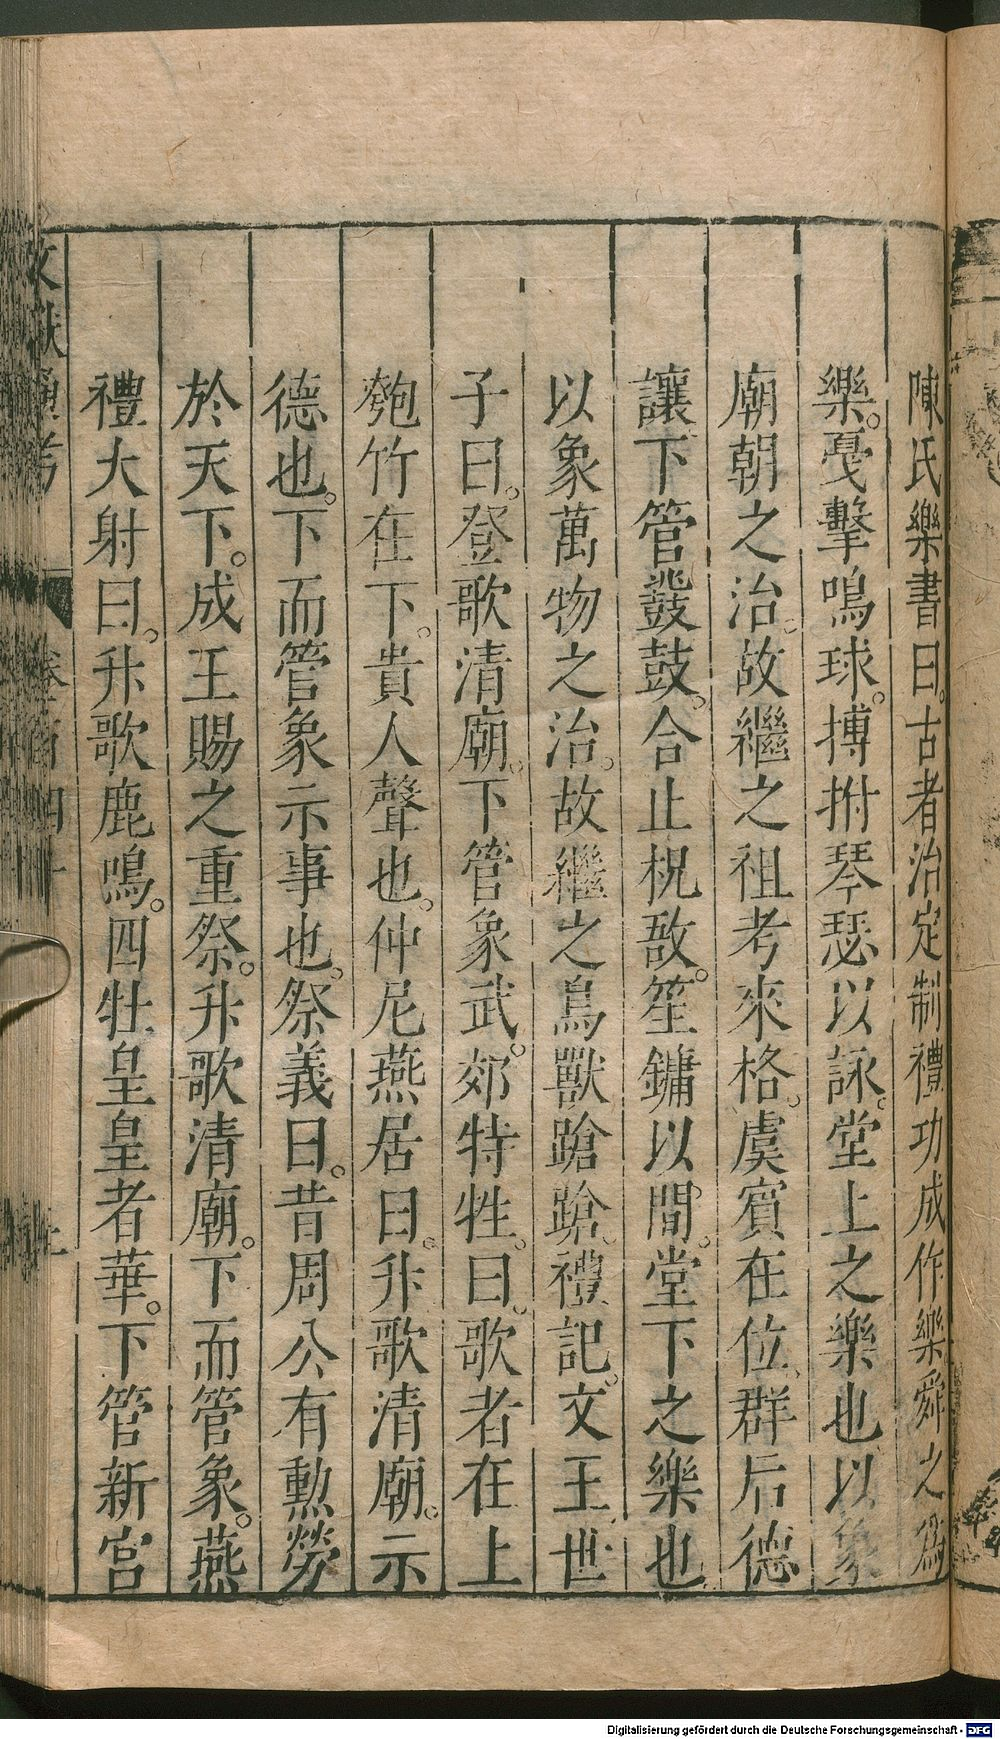 陳氏樂書曰。古者治定制禮功成作樂舜之為
樂。戛擊鳴球。搏拊琴瑟以詠。堂上之樂也以象
廟朝之治。故繼之祖考來格。虞賓在位。群后德
讓下管鼗鼓。合止柷敔。笙鏞以間。堂下之樂也
以象萬物之治。故繼之鳥獸蹌蹌。禮記。文王世
子曰。登歌清廟。下管象武。郊特牲。曰。歌者在上
匏竹在下。貴人聲也。仲尼燕居曰。升歌清廟。示
德也。下而管象示事也。祭義曰。昔周公有勲勞
於天下。成王賜之重祭。升歌清廟。下而管象。燕
禮大射曰。升歌鹿鳴。四牡皇皇者華。下管新宮
文獻通考
卷百四十
Digitalisierung gefördert durch die Deutsche Forschungsgemeinschaft - DFG